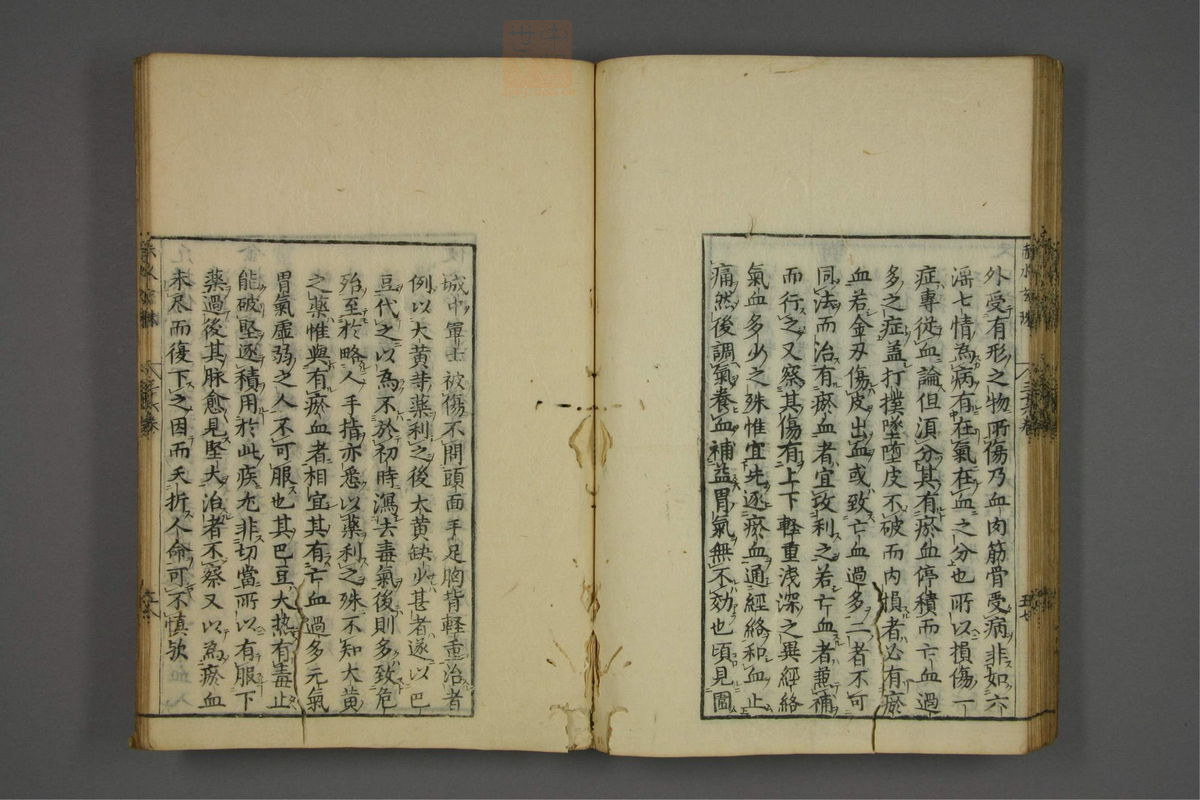 外受有形之物所傷乃血肉筋骨受病非如六
淫七情為病有在氣在血之分也所以損傷一
症專從血論但湏分其有瘀血停積而亡血過
多之症盖打撲墜堕皮不破而内損者必有瘀
血若金刃傷皮出血或致亡血過多二者不可
同法而治有瘀血者宜攻利之若亡血者兼補
而行之又察其傷有上下輕重浅深之異經絡
氣血多少之殊惟宜先逐瘀血通經絡和血止
痛然後調氣養血補益胃氣無不効也頃見圍
城中軍士被傷不問頭面手足胸背輕重治者
例以大黄等藥利之後大黄缺少甚者遂以巴
豆代之以為不於初時瀉去毒氣後則多致危
殆至於略人手指亦悉以藥利之殊不知大黄
之藥惟與有瘀血者相宜其有亡血過多元氣
胃氣虚弱之人不可服也其巴豆大热有毒止
能破堅逐積用於此疾尤非切當所以有服下
藥過後其脉愈見堅大治者不察又以為瘀血
未尽而復下之因而夭折人命可不慎欤